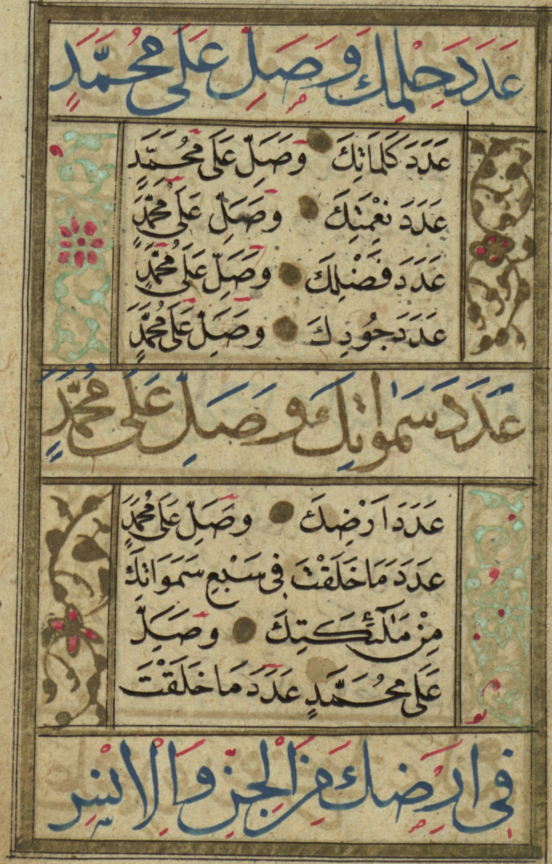 عَدَدَ حِلْمِكَ وَصَلِّ عَلَى مُحَمَّدٍ
عَدَدَ كَلِمَاتِكَ وَصَلِّ عَلَى مُحَمَّدٍ
عَدَدَ نِعْمَتِكَ وَصَلِّ عَلَى مُحَمَّدٍ
عَدَدَ فَضْلِكَ وَصَلِّ عَلَى مُحَمَّدٍ
عَدَدَ جُودِكَ وَصَلِّ عَلَى مُحَمَّدٍ
عَدَدَ سَمٰوَاتِكَ وَصَلِّ عَلَى مُحَمَّدٍ
عَدَدَ اَرْضِكَ وَصَلِّ عَلَى مُحَمَّدٍ
عَدَدَ مَا خَلَقْتَ فِي سَبْعِ سَمَوَاتِكَ
مِنْ مَلٰٓئِكَتِكَ وَصَلِّ
عَلَى مُحَمَّدٍ عَدَدَ مَا خَلَقْتَ
فِي اَرْضِكَ مِنَ الْجِنِّ وَالْاِنْسِ